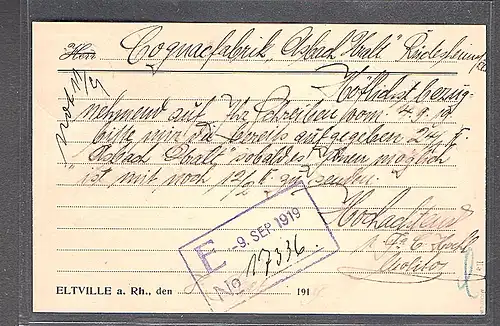 Herrn Cognacfabrik "Asbach Uralt" Rüdesheim
Höflichst bezug-
nehmend auf Ihr Schreiben vom 4.9.19
bitte mir die bereits aufgegeben 24/1 F.
"Asbach Uralt" sobald es Ihnen möglich
ist mit noch 12/2 F. zu senden.
Hochachtend
E
- 9. SEP. 1919
No 17336.
ELTVILLE a. Rh., den 191